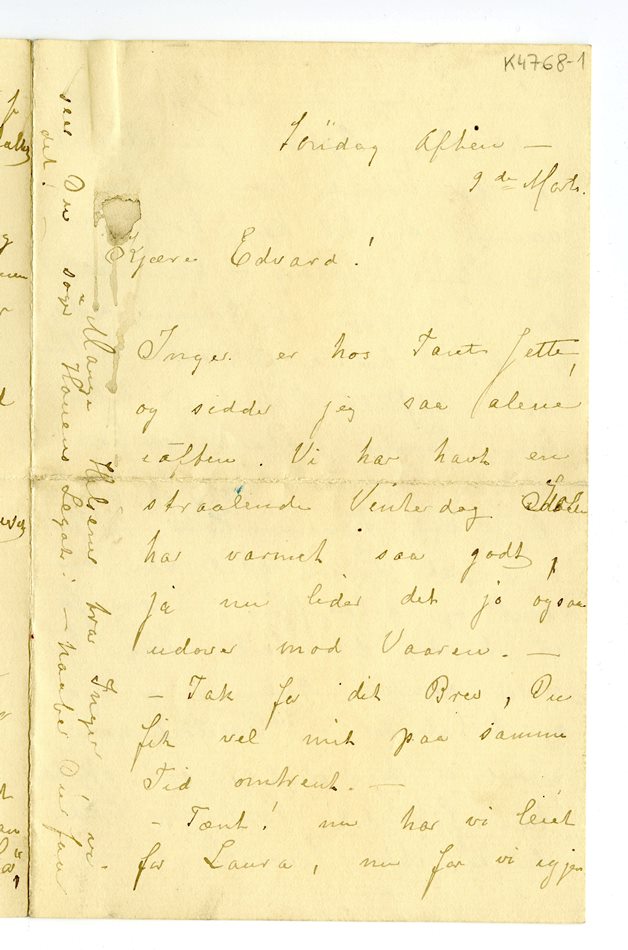 K4768-1
Söndag Aften —
9de Marts.
Kjære Edvard!
Inger er hos Tante Jette,
og sidder jeg saa alene
iaften. Vi har havt en
straalende Vinterdag Solen
har varmet saa godt,
ja nu lider det jo ogsaa
udover mod Vaaren. —
— Tak for dit Brev, Du
fik vel mit paa samme
Tid omtrent. —
— Tænk! nu har vi leiet
for Laura, nu faar vi igjen
Mange Hilsener fra Inger vi
ser Du söger Houens Legat! — haaber Du faar
det! —